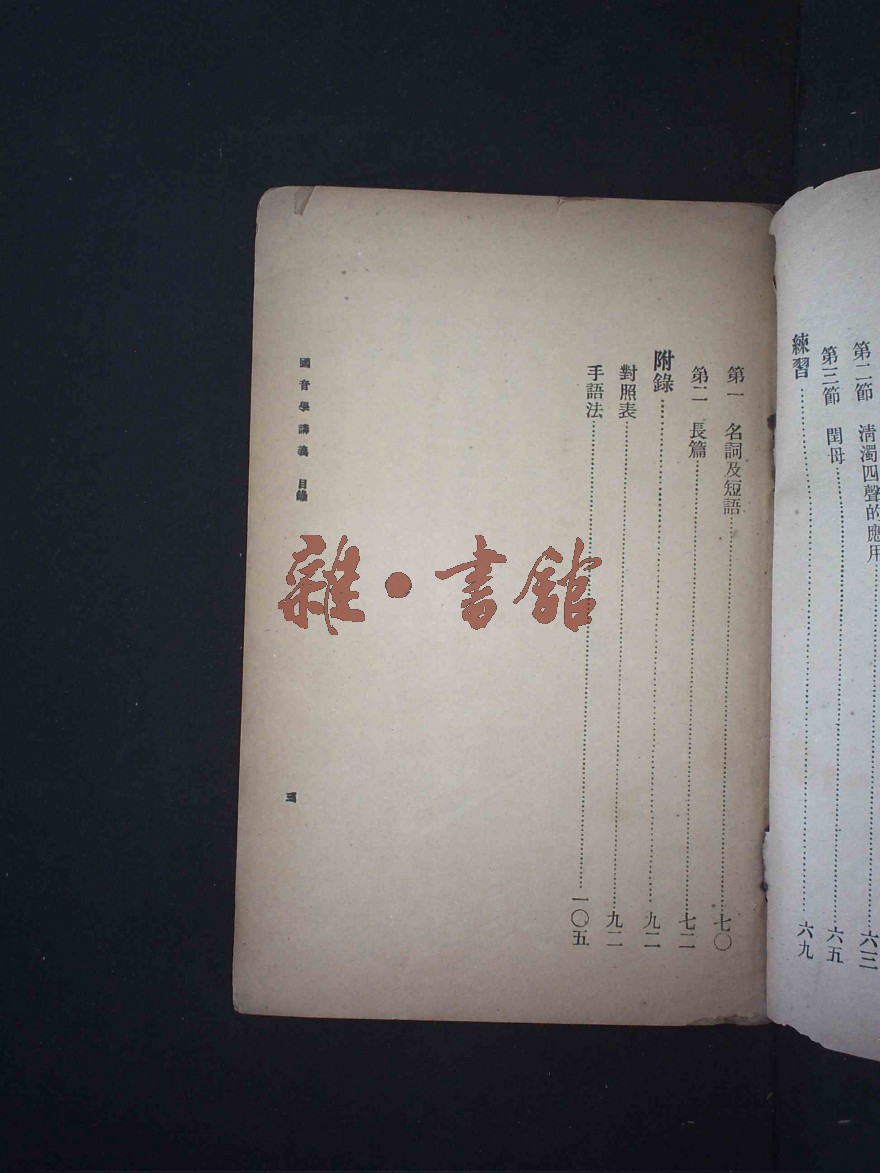 第二節 淸濁四聲的應用……六三
第三節 閏母……六五
練習……六九
第一 名詞及短語……七〇
第二 長篇……七二
附錄……九二
對照表……九二
手語法……一〇五
國音學講義 目錄
三
雜·書舘